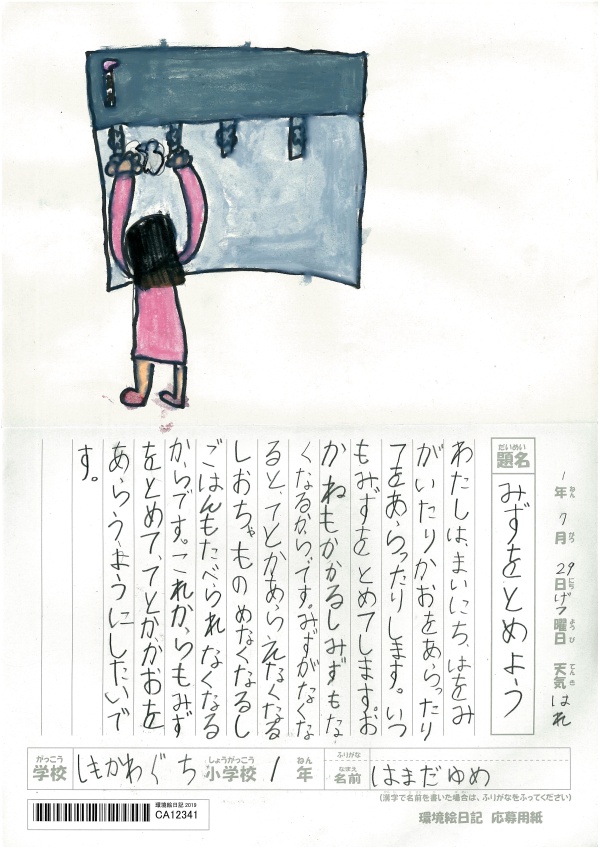 1年 7月 29日 げつ曜日 天気 はれ
ねん がつ にち ようび てんき
だいめい
題名
みずをとめよう
わたしは、まいにち、はをみ
がいたりかおをあらったり
てをあらったりします。いつ
もみずをとめてします。お
かねもかかるしみずもな
くなるからです。みずがなくな
ると、てとかあらえなくなる
しおちゃものめなくなるし
ごはんもたべられなくなる
からです。これからもみず
をとめて、てとかかおを
あらうようにしたいで
す。
がっこう しょうがっこう ねん
学校 しもかわぐち 小学校 1 年
ふりがな
なまえ
名前 はまだゆめ
(漢字で名前を書いた場合は、ふりがなをふってください)
環境絵日記 2019
CA12341
環境絵日記 応募用紙